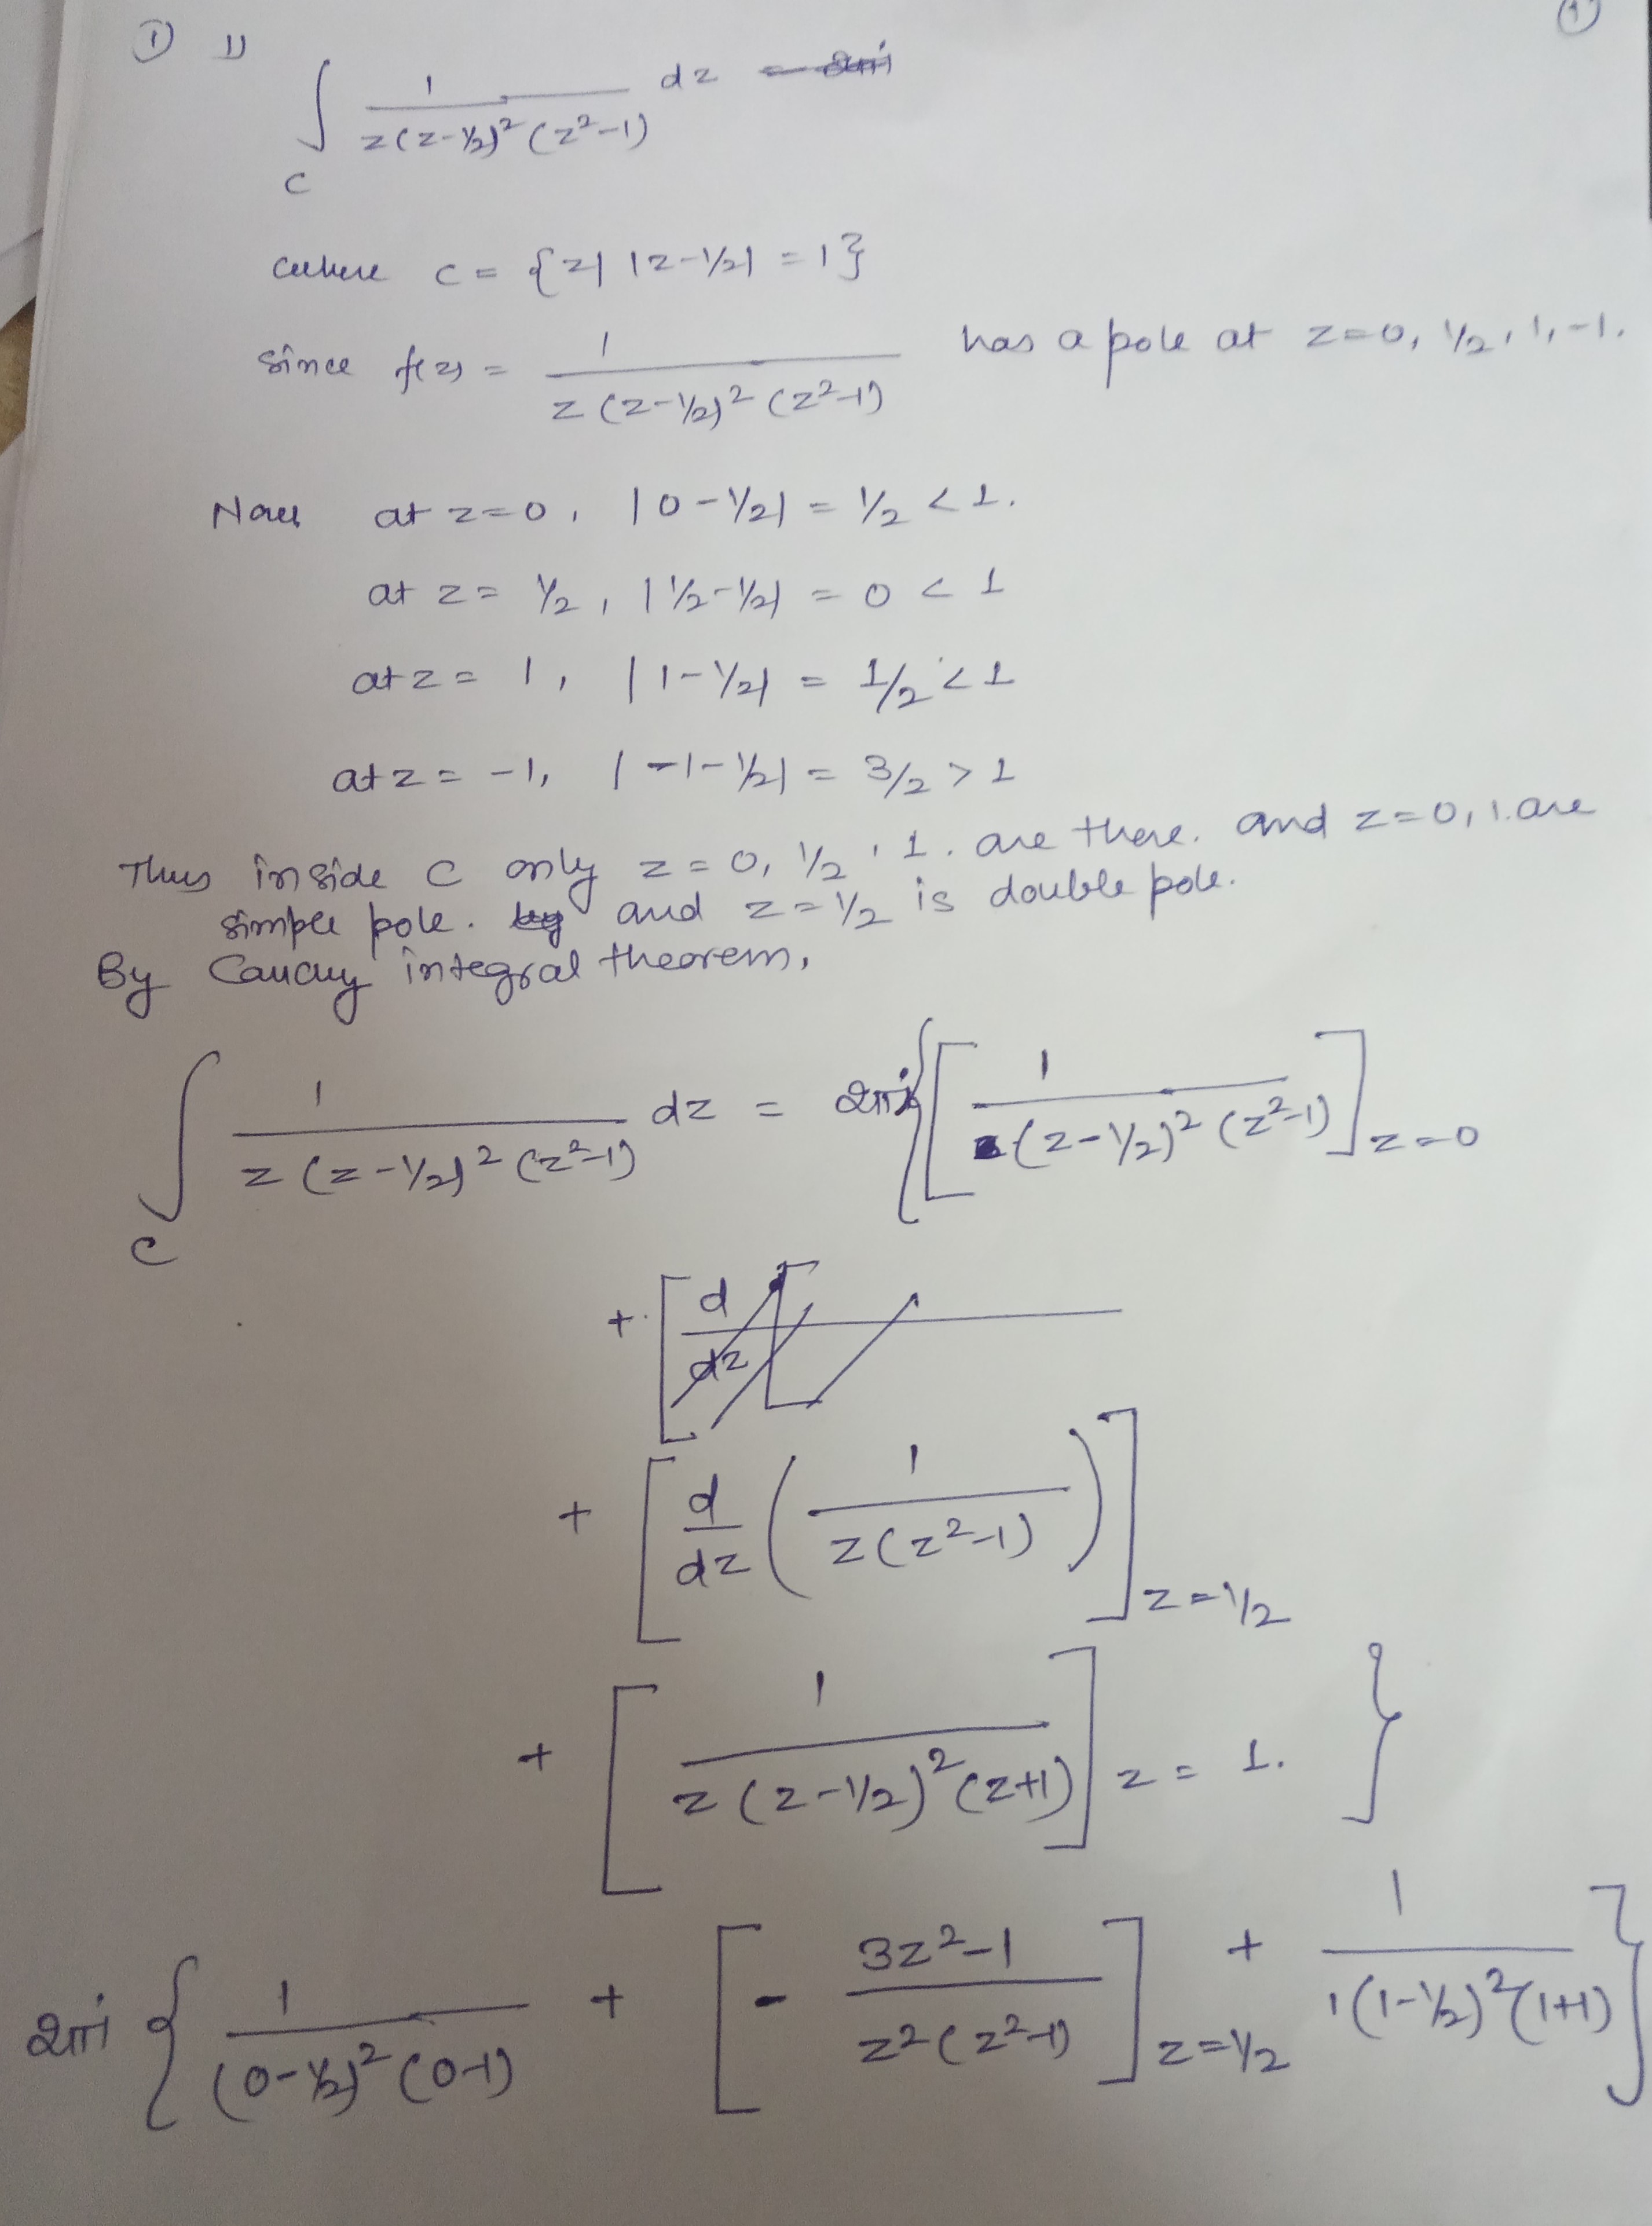 ① 1) ①
∫_C 1/(z(z-1/2)²(z²-1)) dz
where C = {z| |z-1/2| = 1}
since f(z) = 1/(z(z-1/2)²(z²-1)) has a pole at z=0, 1/2, 1, -1.
Now at z=0, |0-1/2| = 1/2 < 1.
at z = 1/2, |1/2-1/2| = 0 < 1
at z = 1, |1-1/2| = 1/2 < 1
at z = -1, |-1-1/2| = 3/2 > 1
Thus inside C only z=0, 1/2, 1. are there. and z=0, 1. are
simple pole. and z=1/2 is double pole.
By Cauchy integral theorem,
∫_C 1/(z(z-1/2)²(z²-1)) dz = 2πi{[1/((z-1/2)²(z²-1))]_{z=0}
+ [d/dz
+ [d/dz (1/(z(z²-1)))]_{z=1/2}
+ [1/(z(z-1/2)²(z+1))]_{z=1.} }
2πi {1/((0-1/2)²(0-1)) + [- (3z²-1)/(z²(z²-1))]_{z=1/2} + 1/(1(1-1/2)²(1+1))}